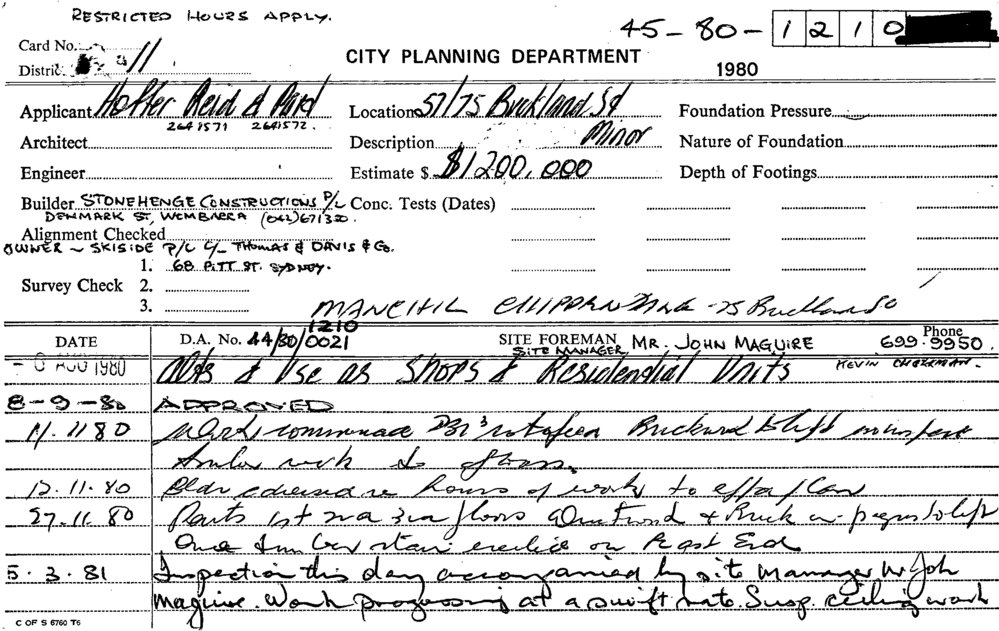 RESTRICTED HOURS APPLY.
45-80-1210
Card No.
CITY PLANNING DEPARTMENT
Distric 11
1980
Applicant Hoffer Reid & Location 57/75 Buckland St Foundation Pressure
2641571 2641572.
Architect Description Minor Nature of Foundation
Engineer Estimate $ $1200,000 Depth of Footings
Builder STONEHENGE CONSTRUCTIONS P/L Conc. Tests (Dates)
DENMARK ST, WOMBARRA (042) 671350
Alignment Checked
OWNER ~ SKISIDE P/L C/- THOMAS & DAVIS & Co.
1. 68 PITT ST. SYDNEY.
Survey Check 2.
3.
75 Buckland St
DATE D.A. No. 44/80/0021 SITE FOREMAN MR. JOHN MAGUIRE Phone 699-9950.
1210 SITE MANAGER
AUG 1980 Alts & Use as Shops & Residential Units KEVIN
8-9-80 APPROVED
11.11.80 Work
work to
12.11.80 Bldr advised re hours of work to
27.11.80 Parts 1st 2nd 3rd floors & Brick
One timber stair erected on East End
5.3.81 Inspection this day accompanied by site Manager Mr Joh
Maguire. Work progressing at a swift rate. Susp. ceiling work
C OF S 6760 T6